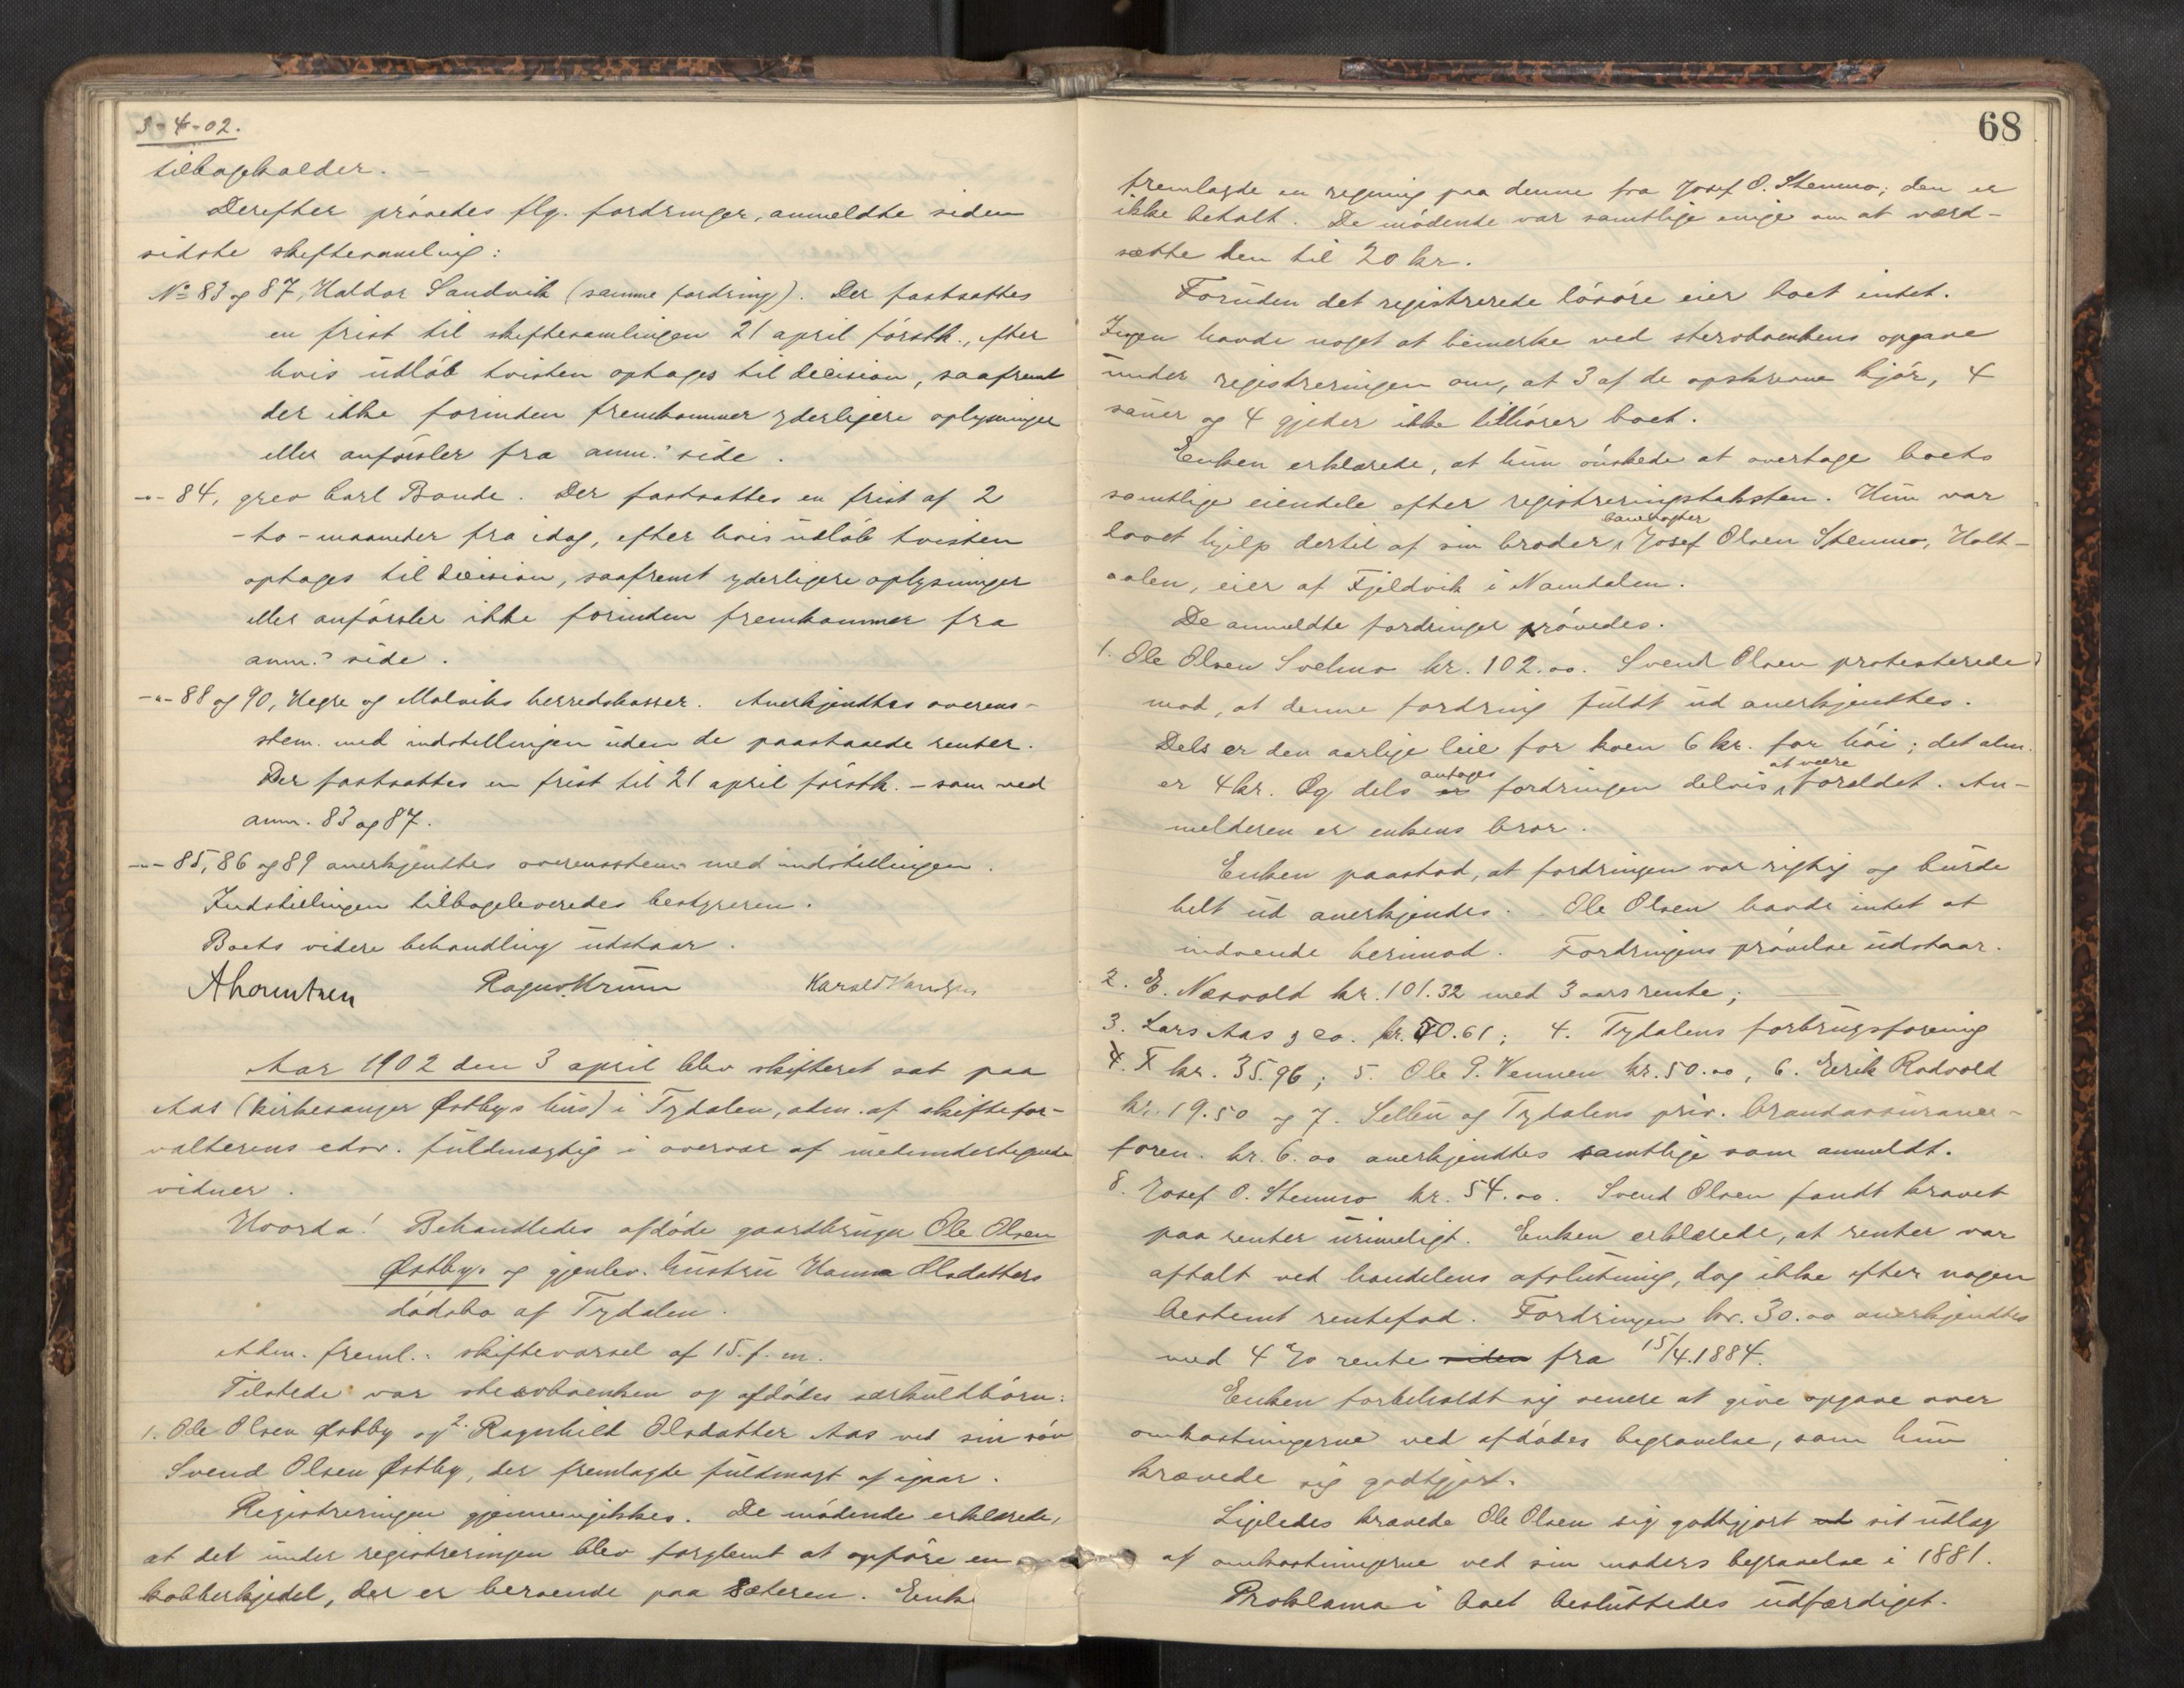 3-4-02.
tilbageholder. -
Derefter prövedes flg. fordringer, anmeldte siden
sidste skiftesamling:
No 83 og 87, Haldor Sandvik (samme fordring). Der fastsattes
en frist til skiftesamlingen 21 april förstk., efter
hvis udlöb tvisten optages til decision, saafremt
der ikke forinden fremkommer yderligere oplysninger
eller anförsler fra anm.s side.
-"- 84, grev Carl Bonde. Der fastsattes en frist af 2
-to- maaneder fra idag, efter hvis udlöb tvisten
optages til decision, saafremt yderligere oplysninger
eller anförsler ikke forinden fremkommer fra
anm.s side.
-"- 88 og 90, Hegre og Malviks herredskasser. Anerkjendtes overens-
stem. med indstillingen uden de paastaaede renter.
Der fastsattes en frist til 21 april förstk. - som ved
anm. 83 og 87.
-"- 85, 86 og 89 anerkjendtes overensstem. med indstillingen.
Indstillingen tilbageleveredes bestyreren.
Boets videre behandling udstaar.
Aar 1902 den 3 april blev skifteret sat paa
Aas (kirkesanger Østbys hus) i Tydalen, adm. af skiftefor-
valterens edsv. fuldmægtig i overvær af medundertegnede
vidner.
Hvorda! Behandledes afdöde gaardbruger Ole Olsen
Østbys og gjenlev. hustru Hanna Olsdatters
dödsbo af Tydalen.
Adm. freml.: skiftevarsel af 15. f. m.
Tilstede var stervboenken og afdödes særkuldbörn:
1. Ole Olsen Østby og 2. Ragnhild Olsdatter Aas ved sin sön
Svend Olsen Østby, der fremlagde fuldmagt af igaar.
Registreringen gjennemgikkes. De mödende erklærede,
at det under registreringen blev forglemt at opföre en
kobberkjedel, der er beroende paa Sæteren. Enk
68
fremlagde en regning paa denne fra Josef O. Stenmo; den er
ikke betalt. De mödende var samtlige enige om at værd-
sætte den til 20 kr.
Foruden det registrerede lösöre eier boet intet.
Ingen havde noget at bemerke ved stervboenkens opgave
under registreringen om, at 3 af de opskrevne kjör, 4
sauer og 4 gjeder ikke tilhörer boet.
Enken erklærede, at hun önskede at overtage boets
samtlige eiendele efter registreringstaksten. Hun var
lovet hjelp dertil af sin broder, Josef Olsen Stenmo, Holt-
aalen, eier af Fjeldvik i Namdalen.
De anmeldte fordringer prövedes.
1. Ole Olsen Svelmo kr. 102.00. Svend Olsen protesterede
mod, at denne fordring fuldt ud anerkjendtes.
Dels er den aarlige leie for koen 6 kr. for höi; det alm.
er 4 kr. Og dels antages fordringen delvis at være foreldet. An-
melderen er enkens bror.
Enken paastod, at fordringen var rigtig og burde
helt ud anerkjendes. Ole Olsen havde intet at
indvende herimod. Fordringens prövelse udstaar.
2. E. Næsvold kr. 101.32 med 3 aars rente;
3. Lars Aas & co. kr. 50.61; 4. Tydalens forbrugsforening
kr. 35.96; 5. Ole P. Kennen kr. 50.00, 6. Erik Rodvold
kr. 19.50 og 7. Selbu og Tydalens priv. brandassurance-
foren. kr. 6.00 anerkjendtes samtlige som anmeldt.
8. Josef O. Stenmo kr. 54.00. Svend Olsen fandt kravet
paa renter urimeligt. Enken erklærede, at renter var
aftalt ved handelens afslutning, dog ikke efter nogen
bestemt rentefod. Fordringen kr. 30.00 anerkjendtes
med 4 % rente siden fra 15/4.1884.
Enken forbeholdt sig senere at give opgave over
omkostningerne ved afdödes begravelse, som hun
krævede sig godtgjort.
Ligeledes krævede Ole Olsen sig godtgjort sit udlæg
af omkostningerne ved sin moders begravelse i 1881.
Proklama i boet besluttedes udfærdiget.